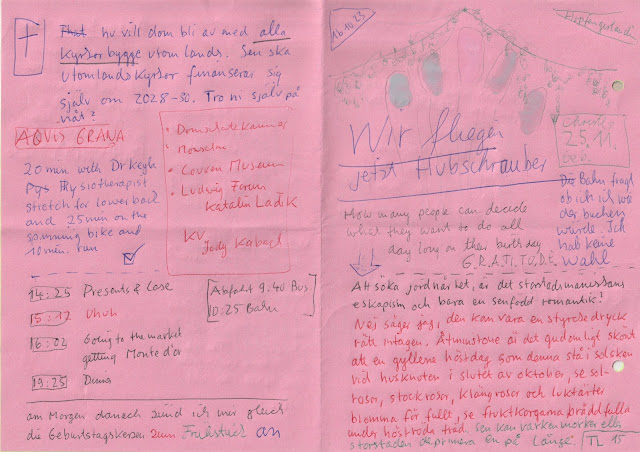 That hu vill dom bli av med alla
Kyrkor bygge utomlands. Sen ska
utomlands Kyrkor finansierar sig
själv om 2028-30. Tro ni själv på
nåt?
AQVIS GRANA
20 min with Dr Kegh
Physiotherapist
stretch for lower back
and 25 min on the
spinning bike and
10 min. run
Domschatzkammer
Couven Museum
Ludwig Forum
Katalin Ladik
KV
14:25 Presents & Case
15:12 Uhuh
16:02 Going to the market
getting Monte d'or
19:25 Dinner
Abfahrt 9:40 Bus
10:25 Bahn
am Morgen danach zünd ich mir gleich
die Geburtstagskerzen zum Frühstück an
16.10.25
Hüpfengerland
Wir fliegen
jetzt Hubschrauber
25.11.
Die Bahn fragt
ob ich ich wie
der buchen
würde. Ich
hab keine
Wahl
How many people can decide
what they want to do all
day long on their birthday
G.R.A.T.I.T.U.D.E.
Att söka jordnärhet, är det storstadsmänniskans
eskapism och bara en senfödd romantik?
Nej säger jag, den kan vara en styrkedryck
rätt intagen. Åtminstone är det gudomligt skönt
att en gyllene höstdag som denna stå i solsken
vid husknuten i slutet av oktober, se sol-
rosor, stockrosor, klängrosor och luktärter
blomma för fullt, se fruktkorgarna bräddfulla
under höströda träd. Sen kan varken mörker eller
storstaden deprimera en på länge. TL 15